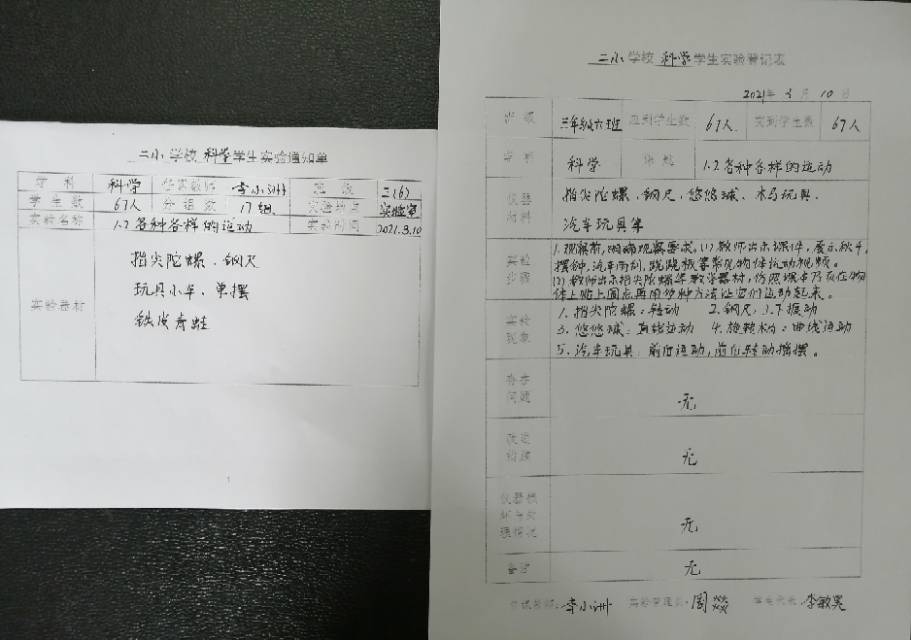 二小 学校 科学 学生实验通知单
学科 科学 任课教师 李小洲 班级 三(6)
学生数 67人 分组数 17组 实验地点 实验室
实验名称 1.2各种各样的运动 实验时间 2021.3.10
指尖陀螺、钢尺
玩具小车、单摆
实验器材
铁皮青蛙
二小 学校 科学 学生实验登记表
2021年 3月 10日
班级 三年级六班 应到学生数 67人 实到学生数 67人
学科 科学 1.2各种各样的运动
仪器 指尖陀螺、钢尺、悠悠球、木马玩具、
材料 汽车玩具等
1.观察前,明确观察要求。(1)教师出示课件,展示秋千、
实验 摆钟、汽车雨刮、跷跷板等常见物体运动视频。
步骤 (2)教师出示指尖陀螺等教学器材,仿照课本P5页在物
体上贴上圆点再用多种方法让它们运动起来。
实验 1.指尖陀螺:转动 2.钢尺:上下振动
现象 3.悠悠球:直线运动 4.旋转木马:曲线运动
5.汽车玩具:前后运动,前后转动摇摆。
存在
问题 无
改进
措施 无
仪器损
坏与处
理情况 无
备注 无
任课教师:李小洲 实验管理员:周燚 学生代表:李敏昊